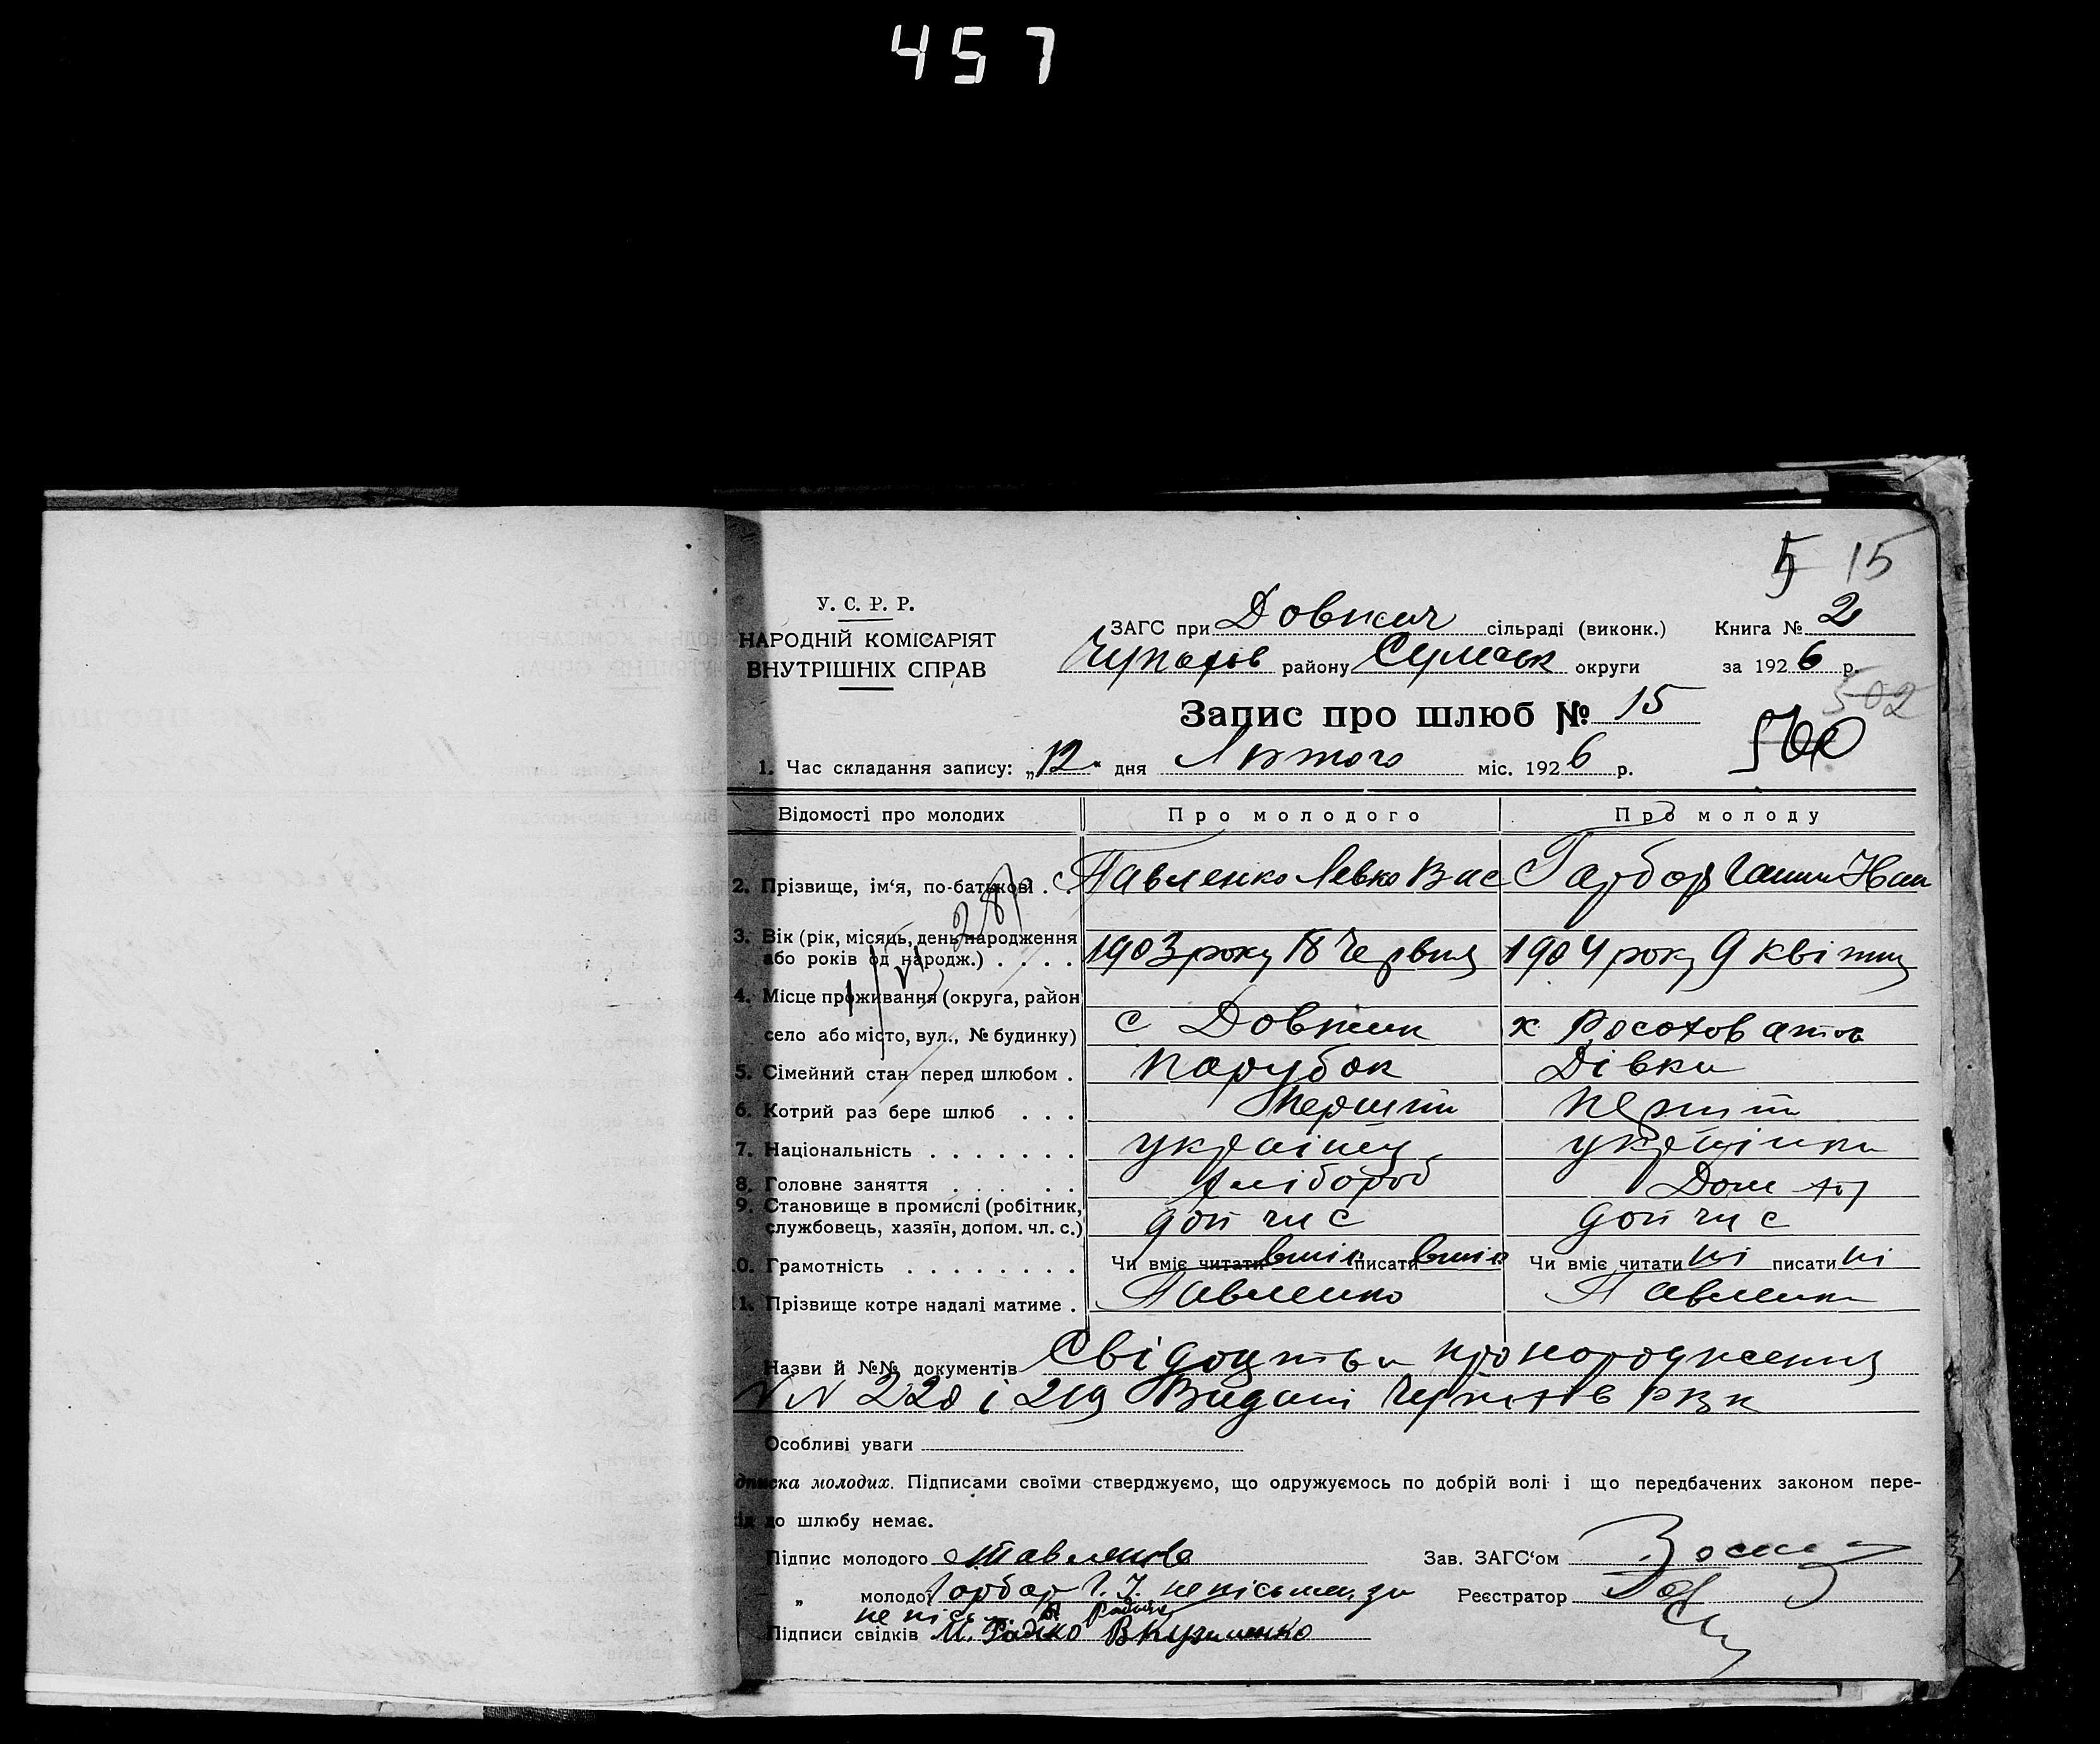 457
5 15
У. С. Р. Р.
НАРОДНІЙ КОМІСАРІЯТ
ВНУТРІШНІХ СПРАВ
ЗАГС при Довжич сільраді (виконк.) Книга № 2
Чупахів району Сумськ округи за 1926 р.
502
Запис про шлюб № 15
500
1. Час складання запису: „12" дня Лютого міс. 1926 р.
Відомості про молодих Про молодого Про молоду
2. Прізвище, ім'я, по-батькові . . Павленко Левко Вас Гарбар Ганна Іван
3. Вік (рік, місяць, день народження
або років од народж.) . . . . 1903 року 18 Червня 1904 року 9 квітня
4. Місце проживання (округа, район
село або місто, вул., № будинку) с Довжик х Росоховатов
5. Сімейний стан перед шлюбом . парубок Дівка
6. Котрий раз бере шлюб . . . Перший перший
7. Національність . . . . . . . українец українка
8. Головне заняття . . . . . хлібороб Дом
9. Становище в промислі (робітник,
службовець, хазяїн, допом. чл. с.) доп чл с доп чл с
10. Грамотність . . . . . . . . Чи вміє читати вміє писати вміє Чи вміє читати ні писати ні
11. Прізвище котре надалі матиме . Павленко Павленко
Назви й №№ документів Свідоцтва про народження
NN 228 і 219 Видані Чупахів РВК
Особливі уваги
дписка молодих. Підписами своїми стверджуємо, що одружуємось по добрій волі і що передбачених законом пере-
ід до шлюбу немає.
Підпис молодого Павленко Зав. ЗАГС'ом
„ молодої Гарбар Г. І. непісьмен. за Реєстратор
непісь
Підписи свідків М. Радько В Кузьменко